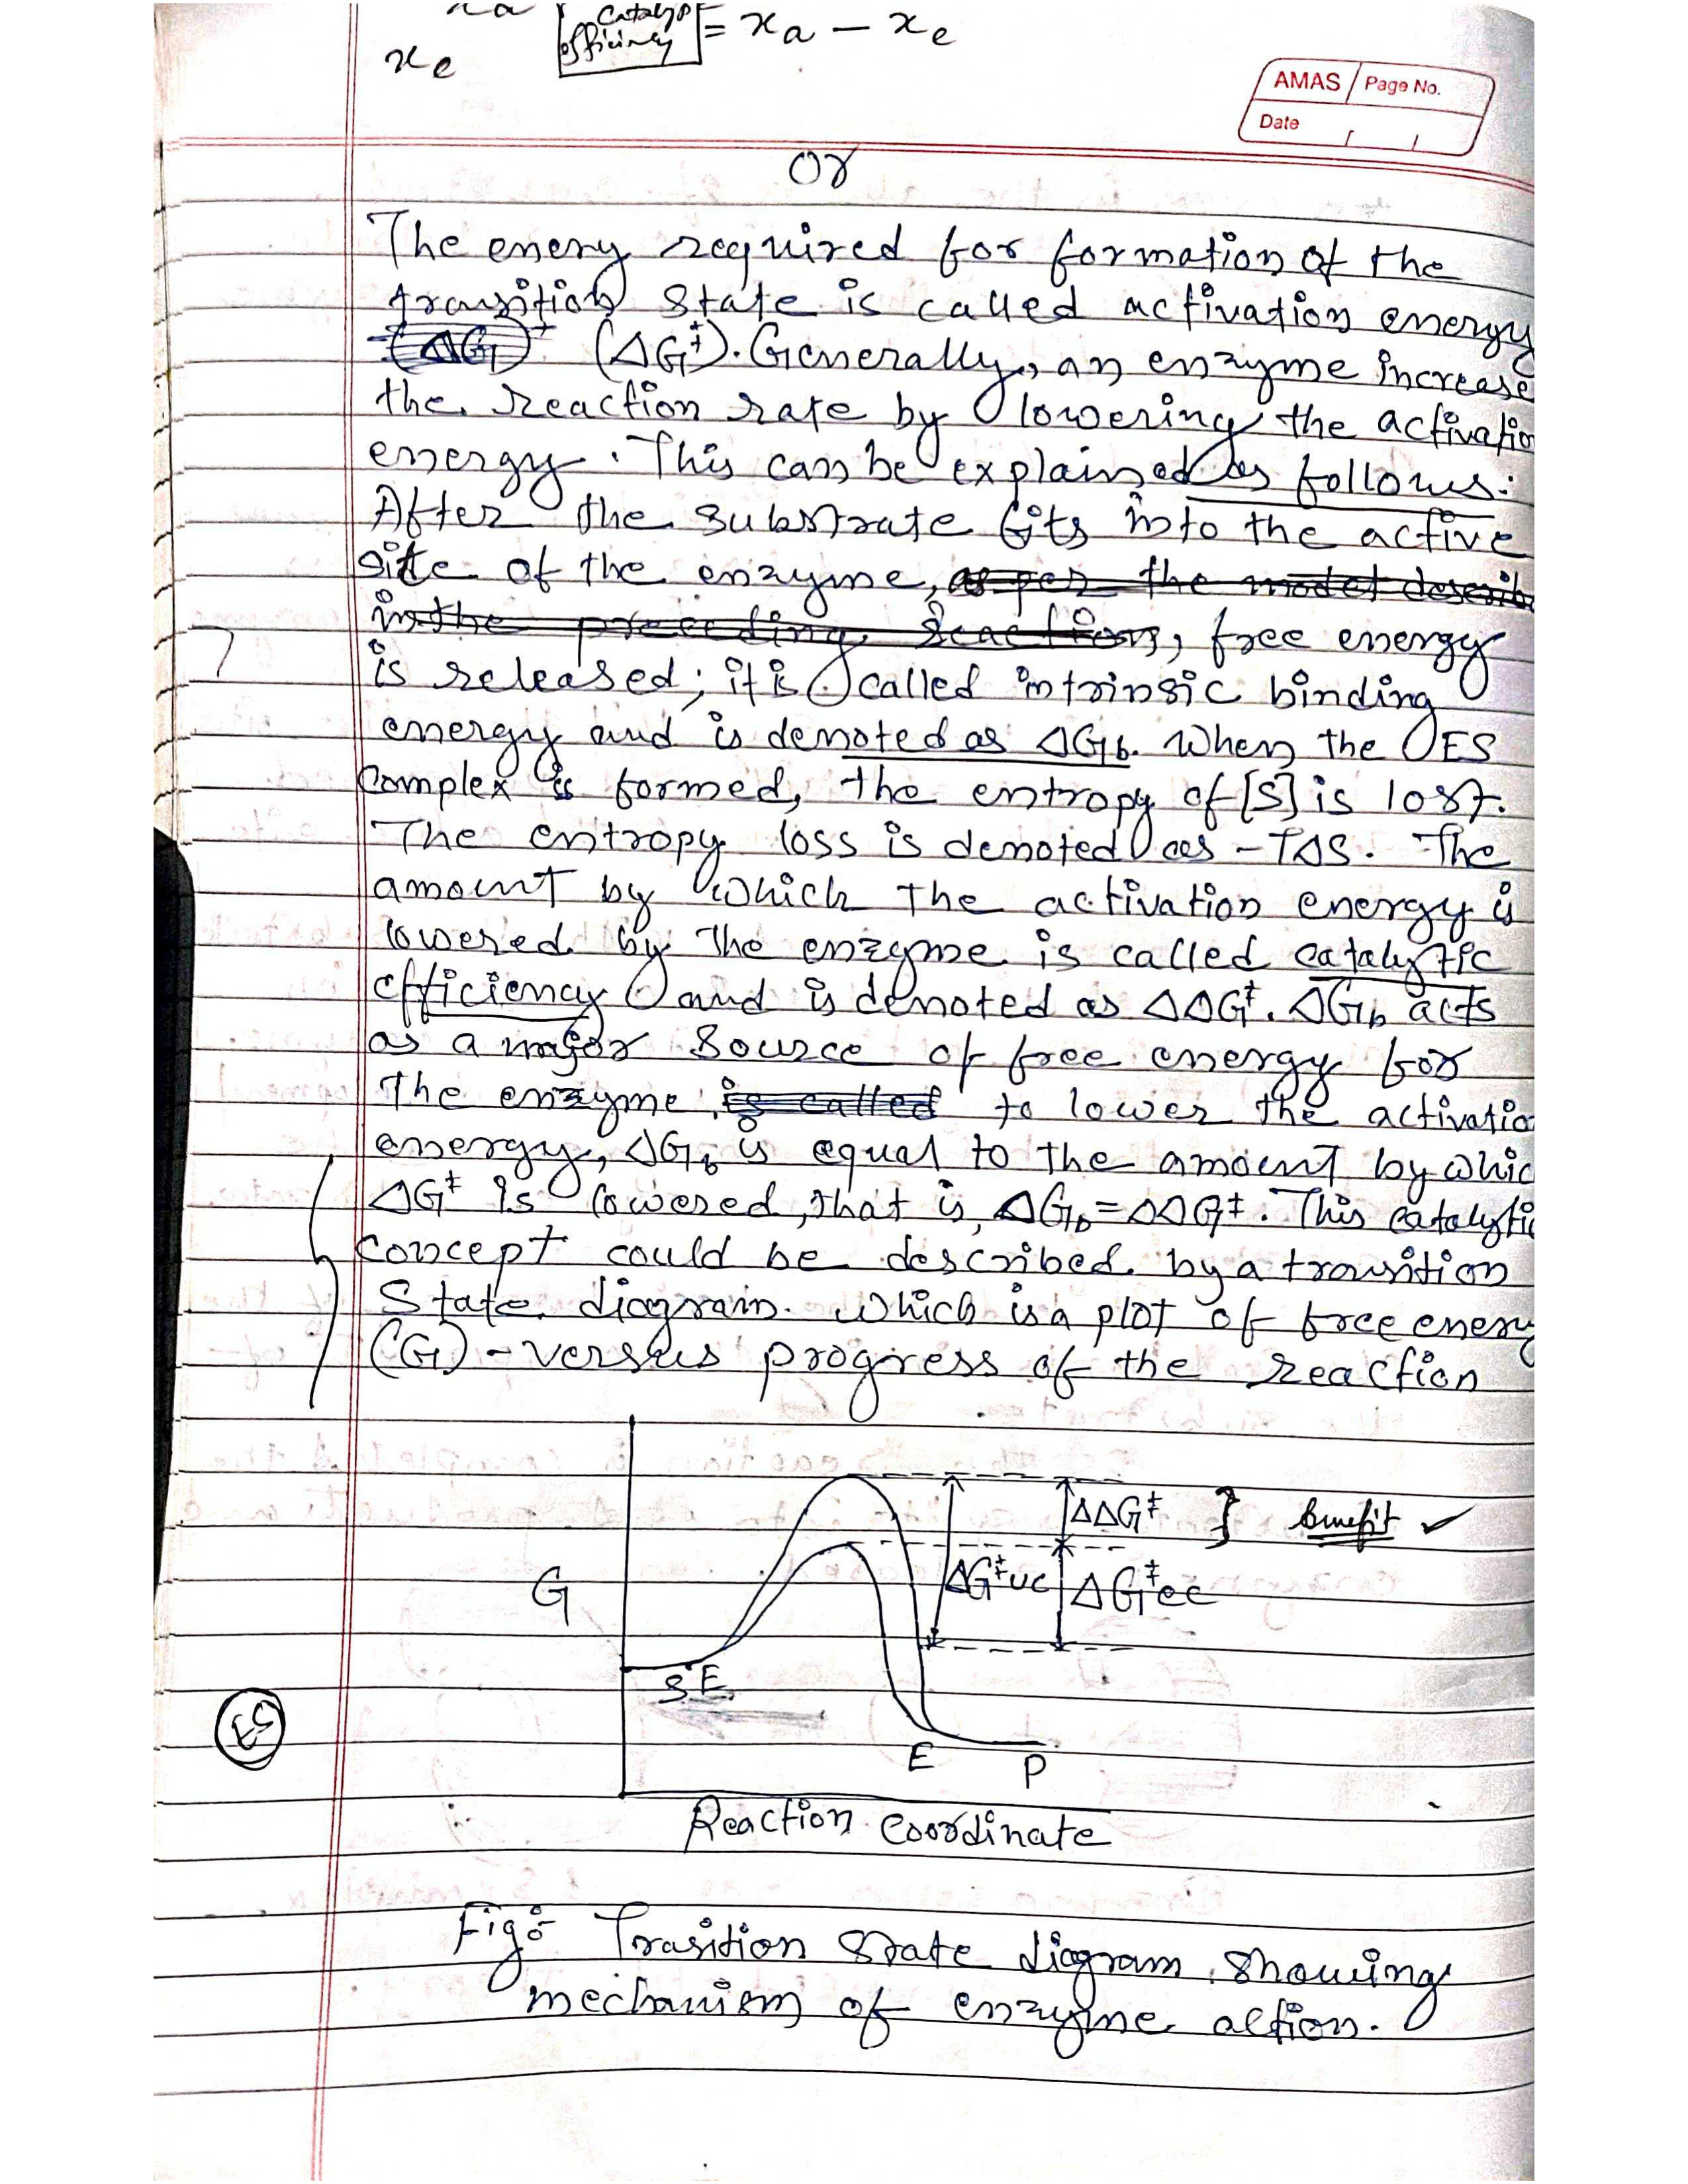 catalyst
xe efficiency = xa – xe
AMAS Page No.
Date
or
The enery required for formation of the
transition state is called activation energy
(ΔG)‡ (ΔG‡). Generally, an enzyme increase
the reaction rate by lowering the activatio
energy. This can be explained as follows:
After the substrate fits into the active
site of the enzyme, as per the model describ
in the preceding reaction, free energy
is released; it is called intrinsic binding
energy and is denoted as ΔGb. When the ES
Complex is formed, the entropy of [S] is lost.
The entropy loss is denoted as –TΔS. The
amount by which the activation energy is
lowered by the enzyme is called catalytic
efficiency and is denoted as ΔΔG‡. ΔGb acts
as a major source of free energy for
the enzyme is called to lower the activatio
energy, ΔGb is equal to the amount by whic
ΔG‡ is lowered, that is, ΔGb = ΔΔG‡. This catalytic
concept could be described by a transition
State diagram. which is a plot of free energy
(G) – versus progress of the reaction
ΔΔG‡ } benefit ✓
G ΔG‡uc ΔG‡ec
S E
53
E P
Reaction Coordinate
Fig:- Trasition state diagram showing
mechanism of enzyme action.